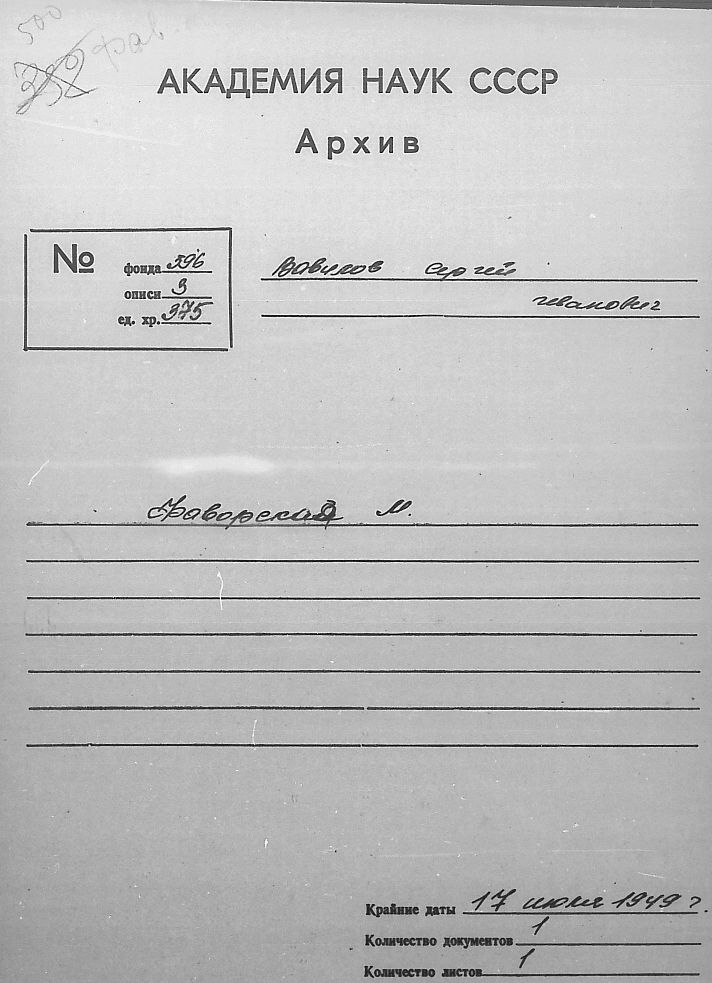 500
352 Фав.
АКАДЕМИЯ НАУК СССР
Архив
№
фонда 596
описи 3
ед. хр. 375
Вавилов Сергей
Иванович
Фаворская М.
Крайние даты 17 июля 1949 г.
Количество документов 1
Количество листов 1